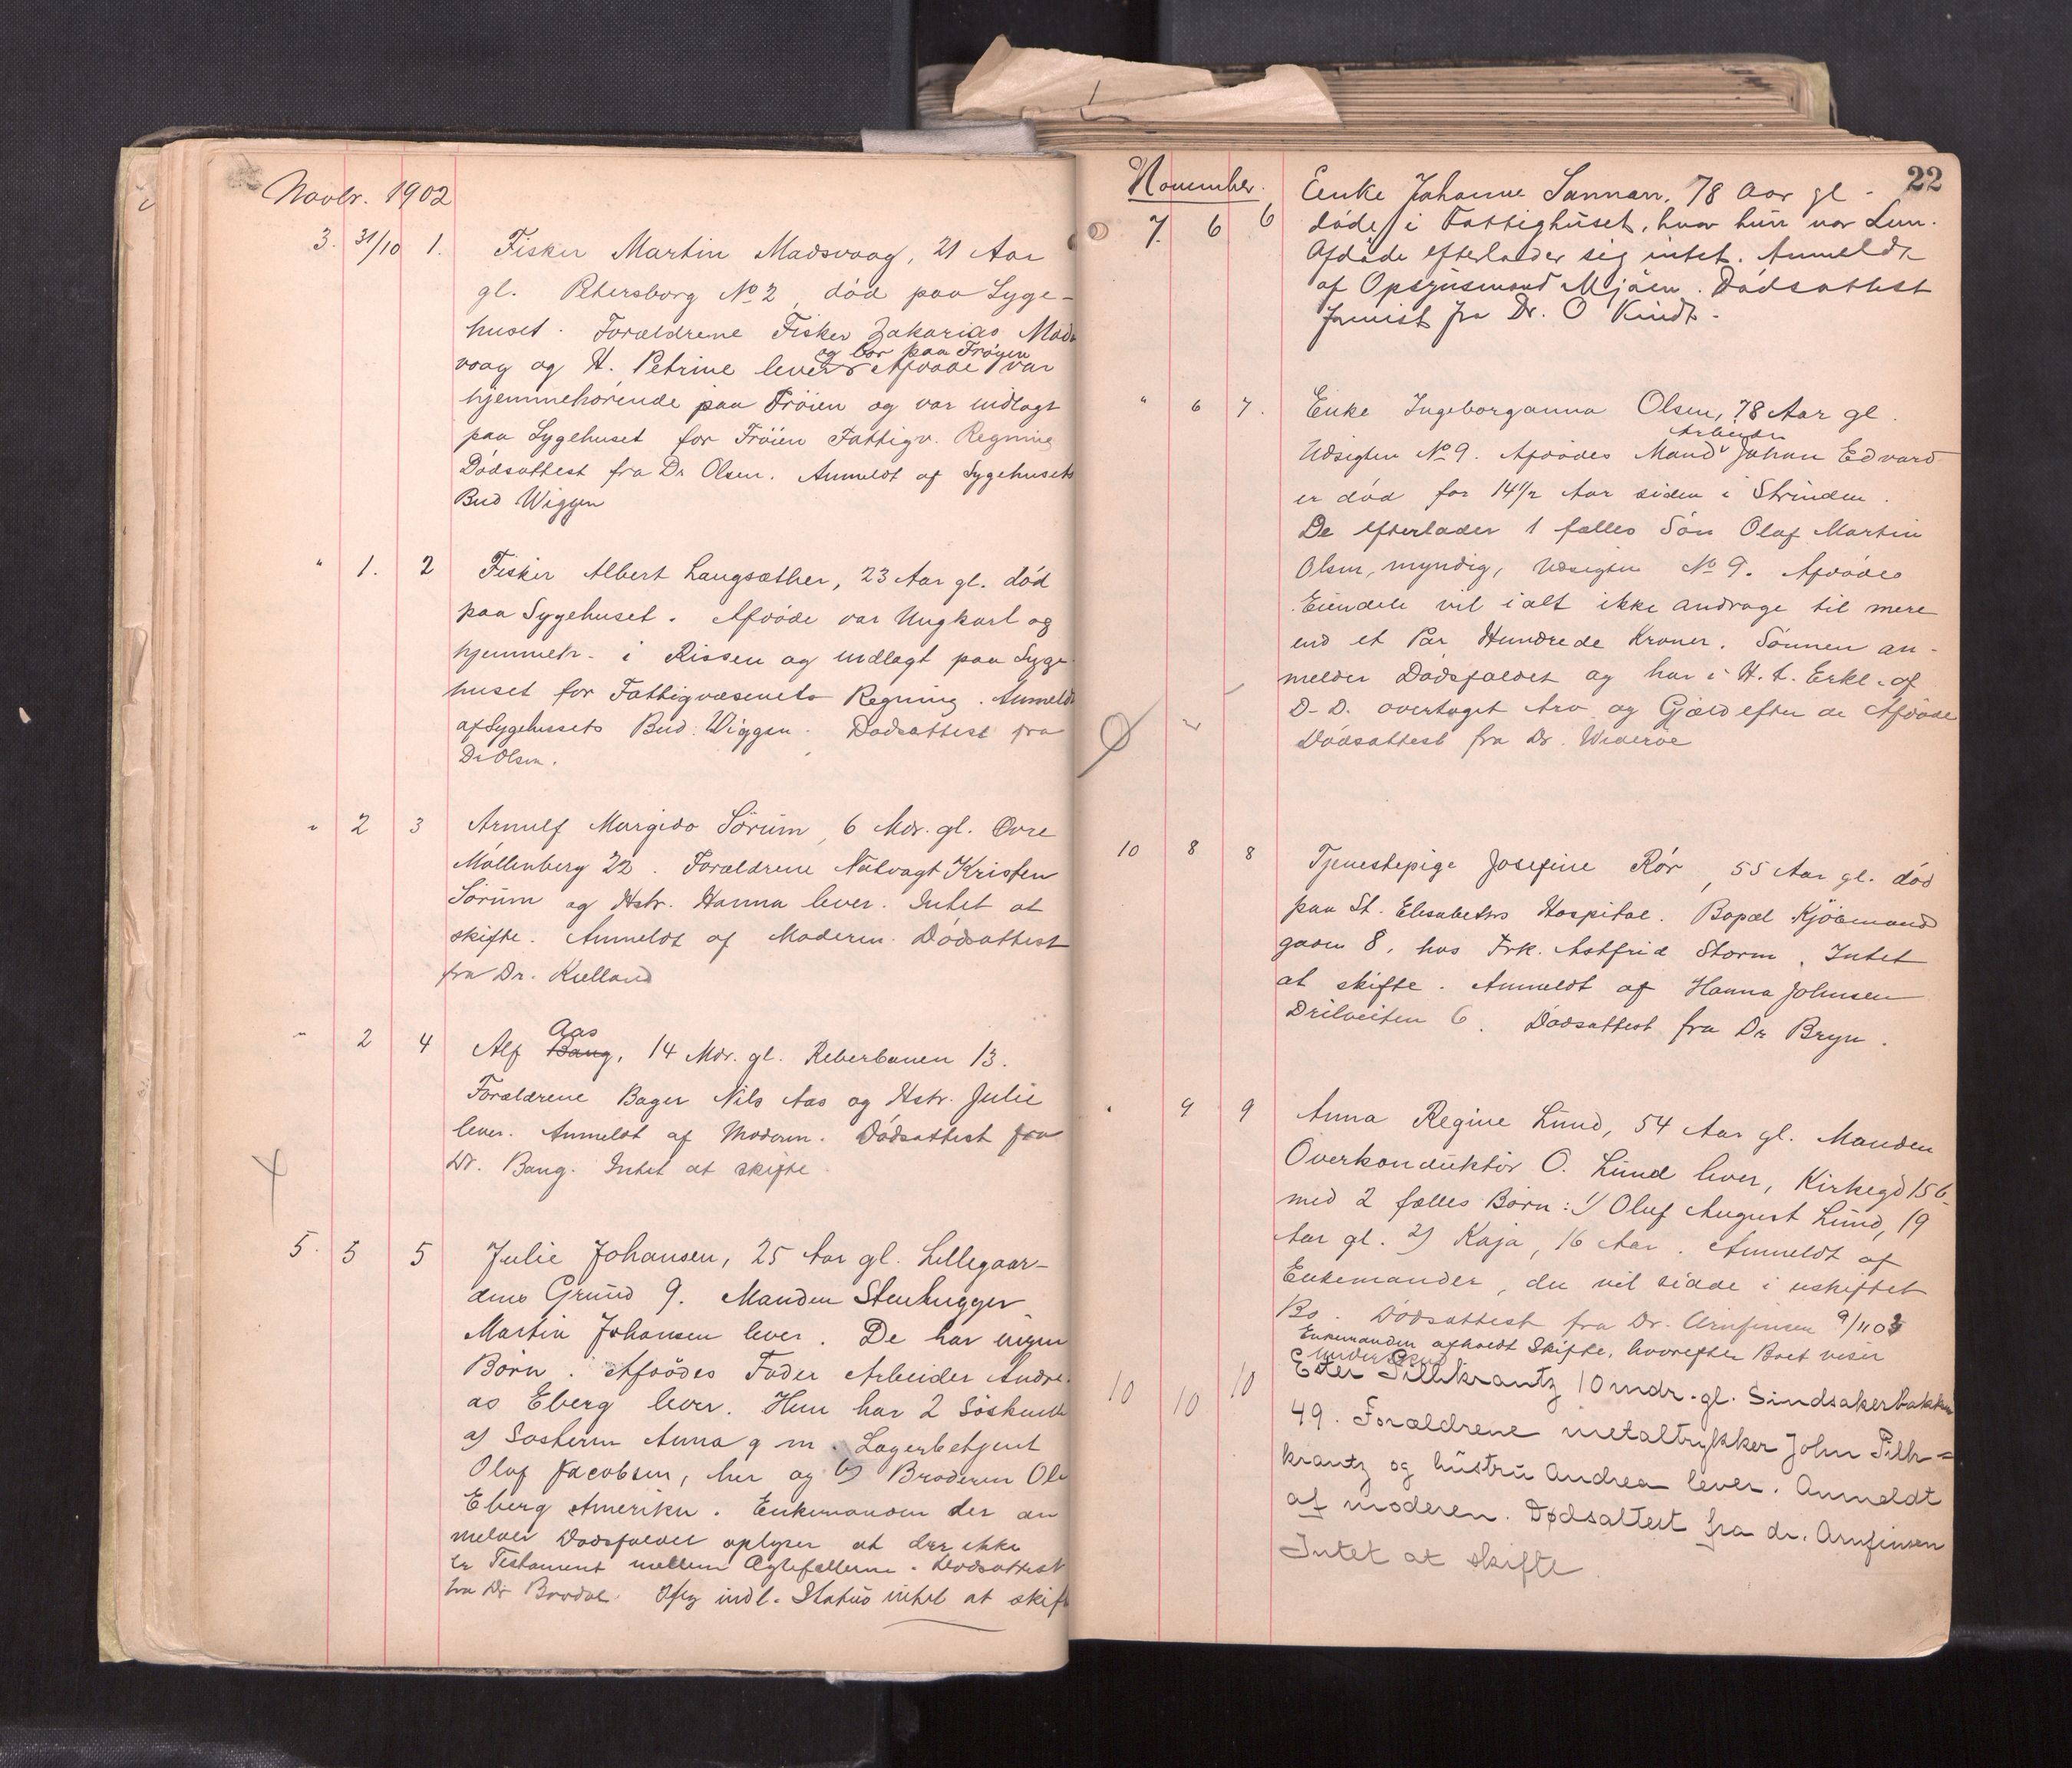 Novbr. 1902
3. 31/10 1. Fisker Martin Madsvaag, 21 Aar
gl. Petersborg No 2, død paa Syge-
huset. Forældrene Fisker Zakarias Mads
vaag og H. Petrine lever og bor paa Frøyen Afdøde var
hjemmehørende paa Frøien og var indlagt
paa Sygehuset for Frøien Fattigv. Regning
Dødsattest fra Dr Olsen. Anmeldt af Sygehusets
Bud Wiggen
" 1. 2 Fisker Albert Langsæther, 23 Aar gl. død
paa Sygehuset. Afdøde var Ungkarl og
hjemmeh. i Rissen og indlagt paa Syge-
huset for Fattigvæsenets Regning. Anmeldt
af Sygehusets Bud: Wiggen. Dødsattest fra
Dr Olsen.
" 2 3 Arnulf Margido Sørum, 6 Mdr. gl. Øvre
Møllenberg 22. Forældrene Natvagt Kristen
Sørum og Hstr. Hanna lever. Intet at
skifte. Anmeldt af Moderen. Dødsattest
fra Dr. Kielland
" 2 4 Alf Bang Aas, 14 Mdr. gl. Reberbanen 13.
Forældrene Bager Nils Aas og Hstr. Julie
lever. Anmeldt af Moderen. Dødsattest fra
Dr. Bang. Intet at skifte
5. 5 5 Julie Johansen, 25 Aar gl. Lillegaar-
dens Grund 9. Manden Stenhugger
Martin Johansen lever. De har ingen
Børn. Afdødes Fader Arbeider Andre-
as Eberg lever. Hun har 2 Søskende
a) Søsteren Anna g m. Lagerbetjent
Olaf Jacobsen, her og b) Broderen Ole
Eberg Amerika. Enkemanden der an
melder Dødsfaldet oplyser at der ikke
er Testament mellem Ægtefællerne. Dødsattest
fra Dr Brodal. Ifølg indl. Status intet at skifte
22
November.
7. 6 6 Enke Johanne Sannan, 78 Aar gl -
døde i Fattighuset, hvor hun var Lem.
Afdøde efterlader sig intet. Anmeldt
af Opsynsmand Mjøen. Dødsattest
forevist fra Dr. O Kindt.
" 6 7. Enke Ingeborganna Olsen, 78 Aar gl.
Udsigten No 9. Afdødes Mand Arbeider Johan Edvard
er død for 14 1/2 Aar siden i Strinden.
De efterlader 1 fælles Søn Olaf Martin
Olsen, myndig, Udsigten No 9. Afdødes
Eiendele vil ialt ikke andrage til mere
end et Par Hundrede Kroner. Sønnen an-
melder Dødsfaldet og har i H. t. Erkl. af
D. D. overtaget Arv og Gjæld efter de Afdøde
Dødsattest fra Dr. Widerøe
10 8 8 Tjenestepige Josefine Rør, 55 Aar gl. død
paa St. Elisabeths Hospital. Bopæl Kjøbmand
gaden 8, hos Frk. Astfrid Storm. Intet
at skifte. Anmeldt af Hanna Johnsen
Drilveiten 6. Dødsattest fra Dr Bryn.
" 9 9 Anna Regine Lund, 54 Aar gl. Manden
Overkonduktør O. Lund lever, Kirkegd 15 b
med 2 fælles Børn: 1) Oluf August Lund, 19
Aar gl. 2) Kaja, 16 Aar. Anmeldt af
Enkemanden, der vil sidde i uskiftet
Bo. Dødsattest fra Dr. Arnfinsen 9/11 02
Enkemanden afholdt Skifte, hvorefter Boet viser
Underskud
10 10 10 Ester Pilhkrantz 10 mdr. gl. Sindsakerbakken
49. Forældrene metaltrykker John Pilh-
krantz og hustru Andrea lever. Anmeldt
af moderen. Dødsattest fra dr. Arnfinsen
Intet at skifte